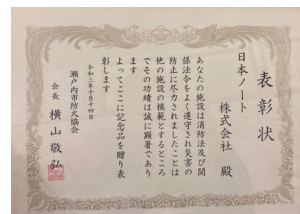 表彰状
日本ノート
株式会社 殿
あなたの施設は消防法及び関
係法令をよく遵守され災害の
防止に尽力されましたことは
他の施設の模範とするところ
でその功績は誠に顕著であり
ます
よってここに記念品を贈り表
彰します
令和三年十月十四日
瀬戸内市防火協会
会長 横山敬弘